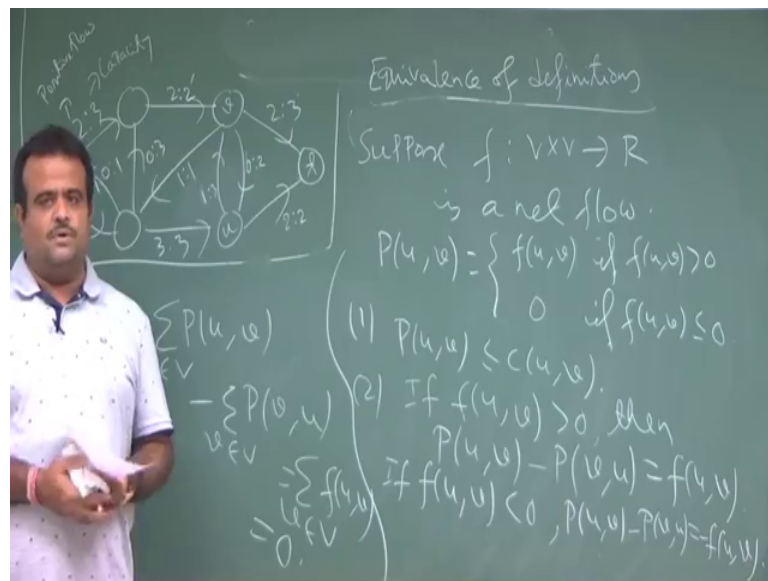 Positive flow
→ Capacity
2:3
2:2
2:3
0:1
0:3
1:1
1:3
0:2
2:2
3:3
v
u
t
ΣP(u,v)
∈V
- ΣP(v,u)
v∈V
= Σf(u,v)
v∈V
= 0.
Equivalence of definitions
Suppose f: V×V → R
is a net flow.
P(u,v) = { f(u,v) if f(u,v)>0
0 if f(u,v) ≤ 0.
(1) P(u,v) ≤ c(u,v).
(2) If f(u,v) >0, then
P(u,v) - P(v,u) = f(u,v).
If f(u,v) <0, P(u,v) - P(v,u) = -f(v,u).